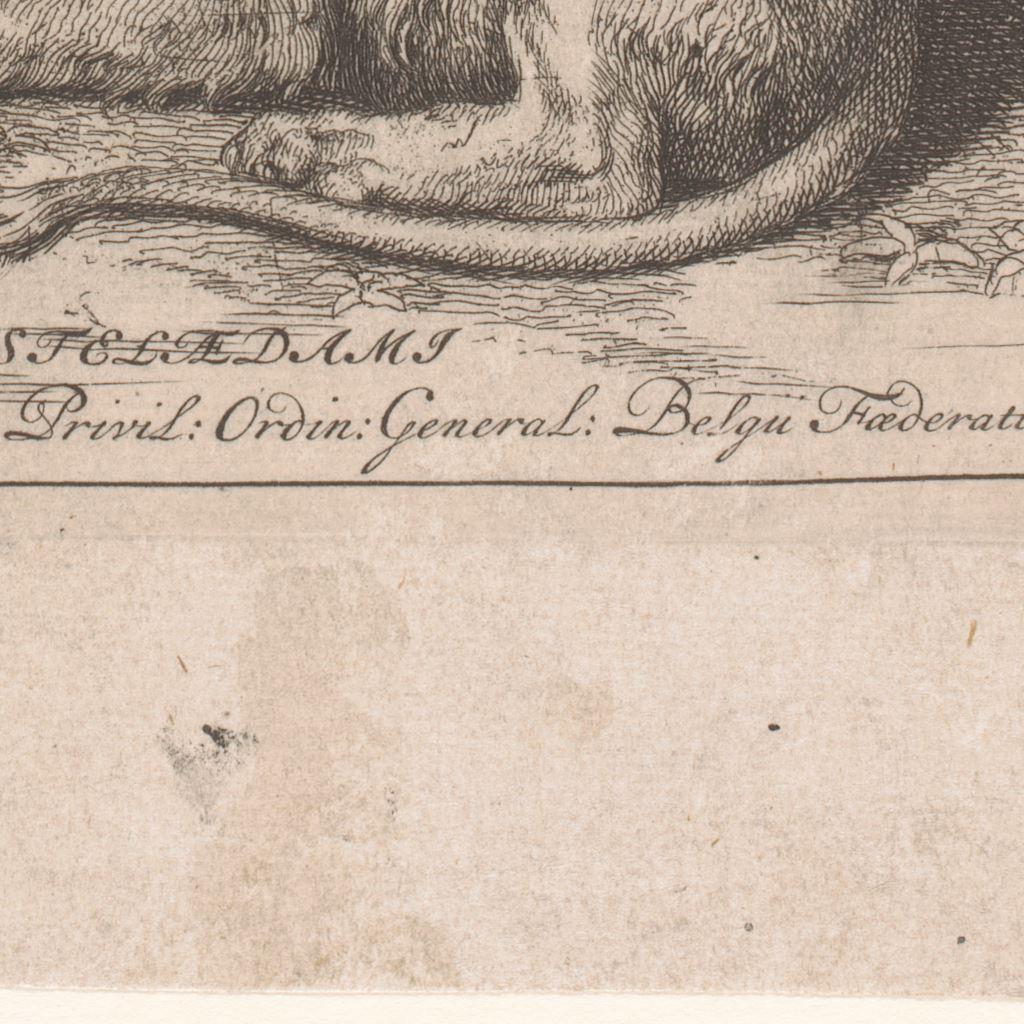 STELÆDAMI
Privil: Ordin: General: Belgii Fœderati